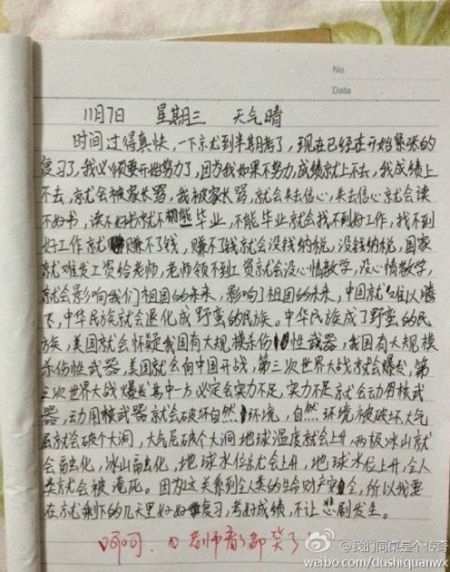 No.
Data
11月7日 星期三 天气晴
时间过得真快，一下京尤到半期考了，现在已经在开始紧张的
复习了，我必须要开始努力了，因为我如果不努力，成绩就上不去，我成绩上
不去，京就会被家长骂，我被家长骂，就会失去信心，失去信心就会读
不好书，读不好书就不能毕业，不能毕业就会找不到好工作，找不到
好工作就赚不了钱，赚不了钱就会没钱纳税，没钱纳税，国家
就难发工资给老师，老师领不到工资就会没心情教学，没心情教学，
就会影响我们祖国的未来，影响了祖国的未来，中国就难以腾
飞，中华民族就会退化成野蛮的民族。中华民族成了野蛮的民
族，美国就会怀疑我国有大规模杀伤性武器，我国有大规模
杀伤性武器，美国就会向中国开战，第三次世界大战就会爆发，第
三次世界大战爆发其中一方必定会实力不足，实力不足就会动用核武
器，动用核武器就会破坏自然环境，自然环境被破坏，大气
层就会破个大洞，大气层破个大洞地球温度就会上升，两极冰山就
会融化，冰山融化，地球水位就会上升，地球水位上升，全人
类就会被淹死。因为这关系到全人类的生命财产安全，所以我要
在就剩下的几天里好好复习，考好成绩，不让悲剧发生。
呵呵，老师看了都笑了
@我的同桌是个传奇
weibo.com/dushiquanwx